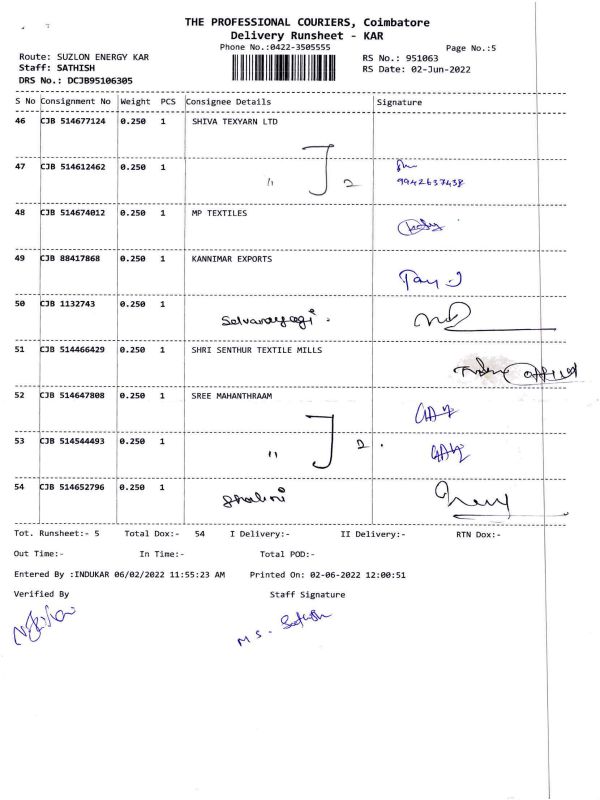 THE PROFESSIONAL COURIERS, Coimbatore
Delivery Runsheet - KAR
Phone No.:0422-3505555
Page No.:5
Route: SUZLON ENERGY KAR
RS No.: 951063
Staff: SATHISH
RS Date: 02-Jun-2022
DRS No.: DCJB95106305
S No Consignment No Weight PCS Consignee Details Signature
46 CJB 514677124 0.250 1 SHIVA TEXYARN LTD
47 CJB 514612462 0.250 1 " 2
9942637438
48 CJB 514674012 0.250 1 MP TEXTILES
49 CJB 88417868 0.250 1 KANNIMAR EXPORTS
50 CJB 1132743 0.250 1
51 CJB 514466429 0.250 1 SHRI SENTHUR TEXTILE MILLS
52 CJB 514647808 0.250 1 SREE MAHANTHRAAM
53 CJB 514544493 0.250 1 " 2
54 CJB 514652796 0.250 1 Shalini
Tot. Runsheet:- 5 Total Dox:- 54 I Delivery:- II Delivery:- RTN Dox:-
Out Time:- In Time:- Total POD:-
Entered By :INDUKAR 06/02/2022 11:55:23 AM Printed On: 02-06-2022 12:00:51
Verified By Staff Signature
M S. Sathish